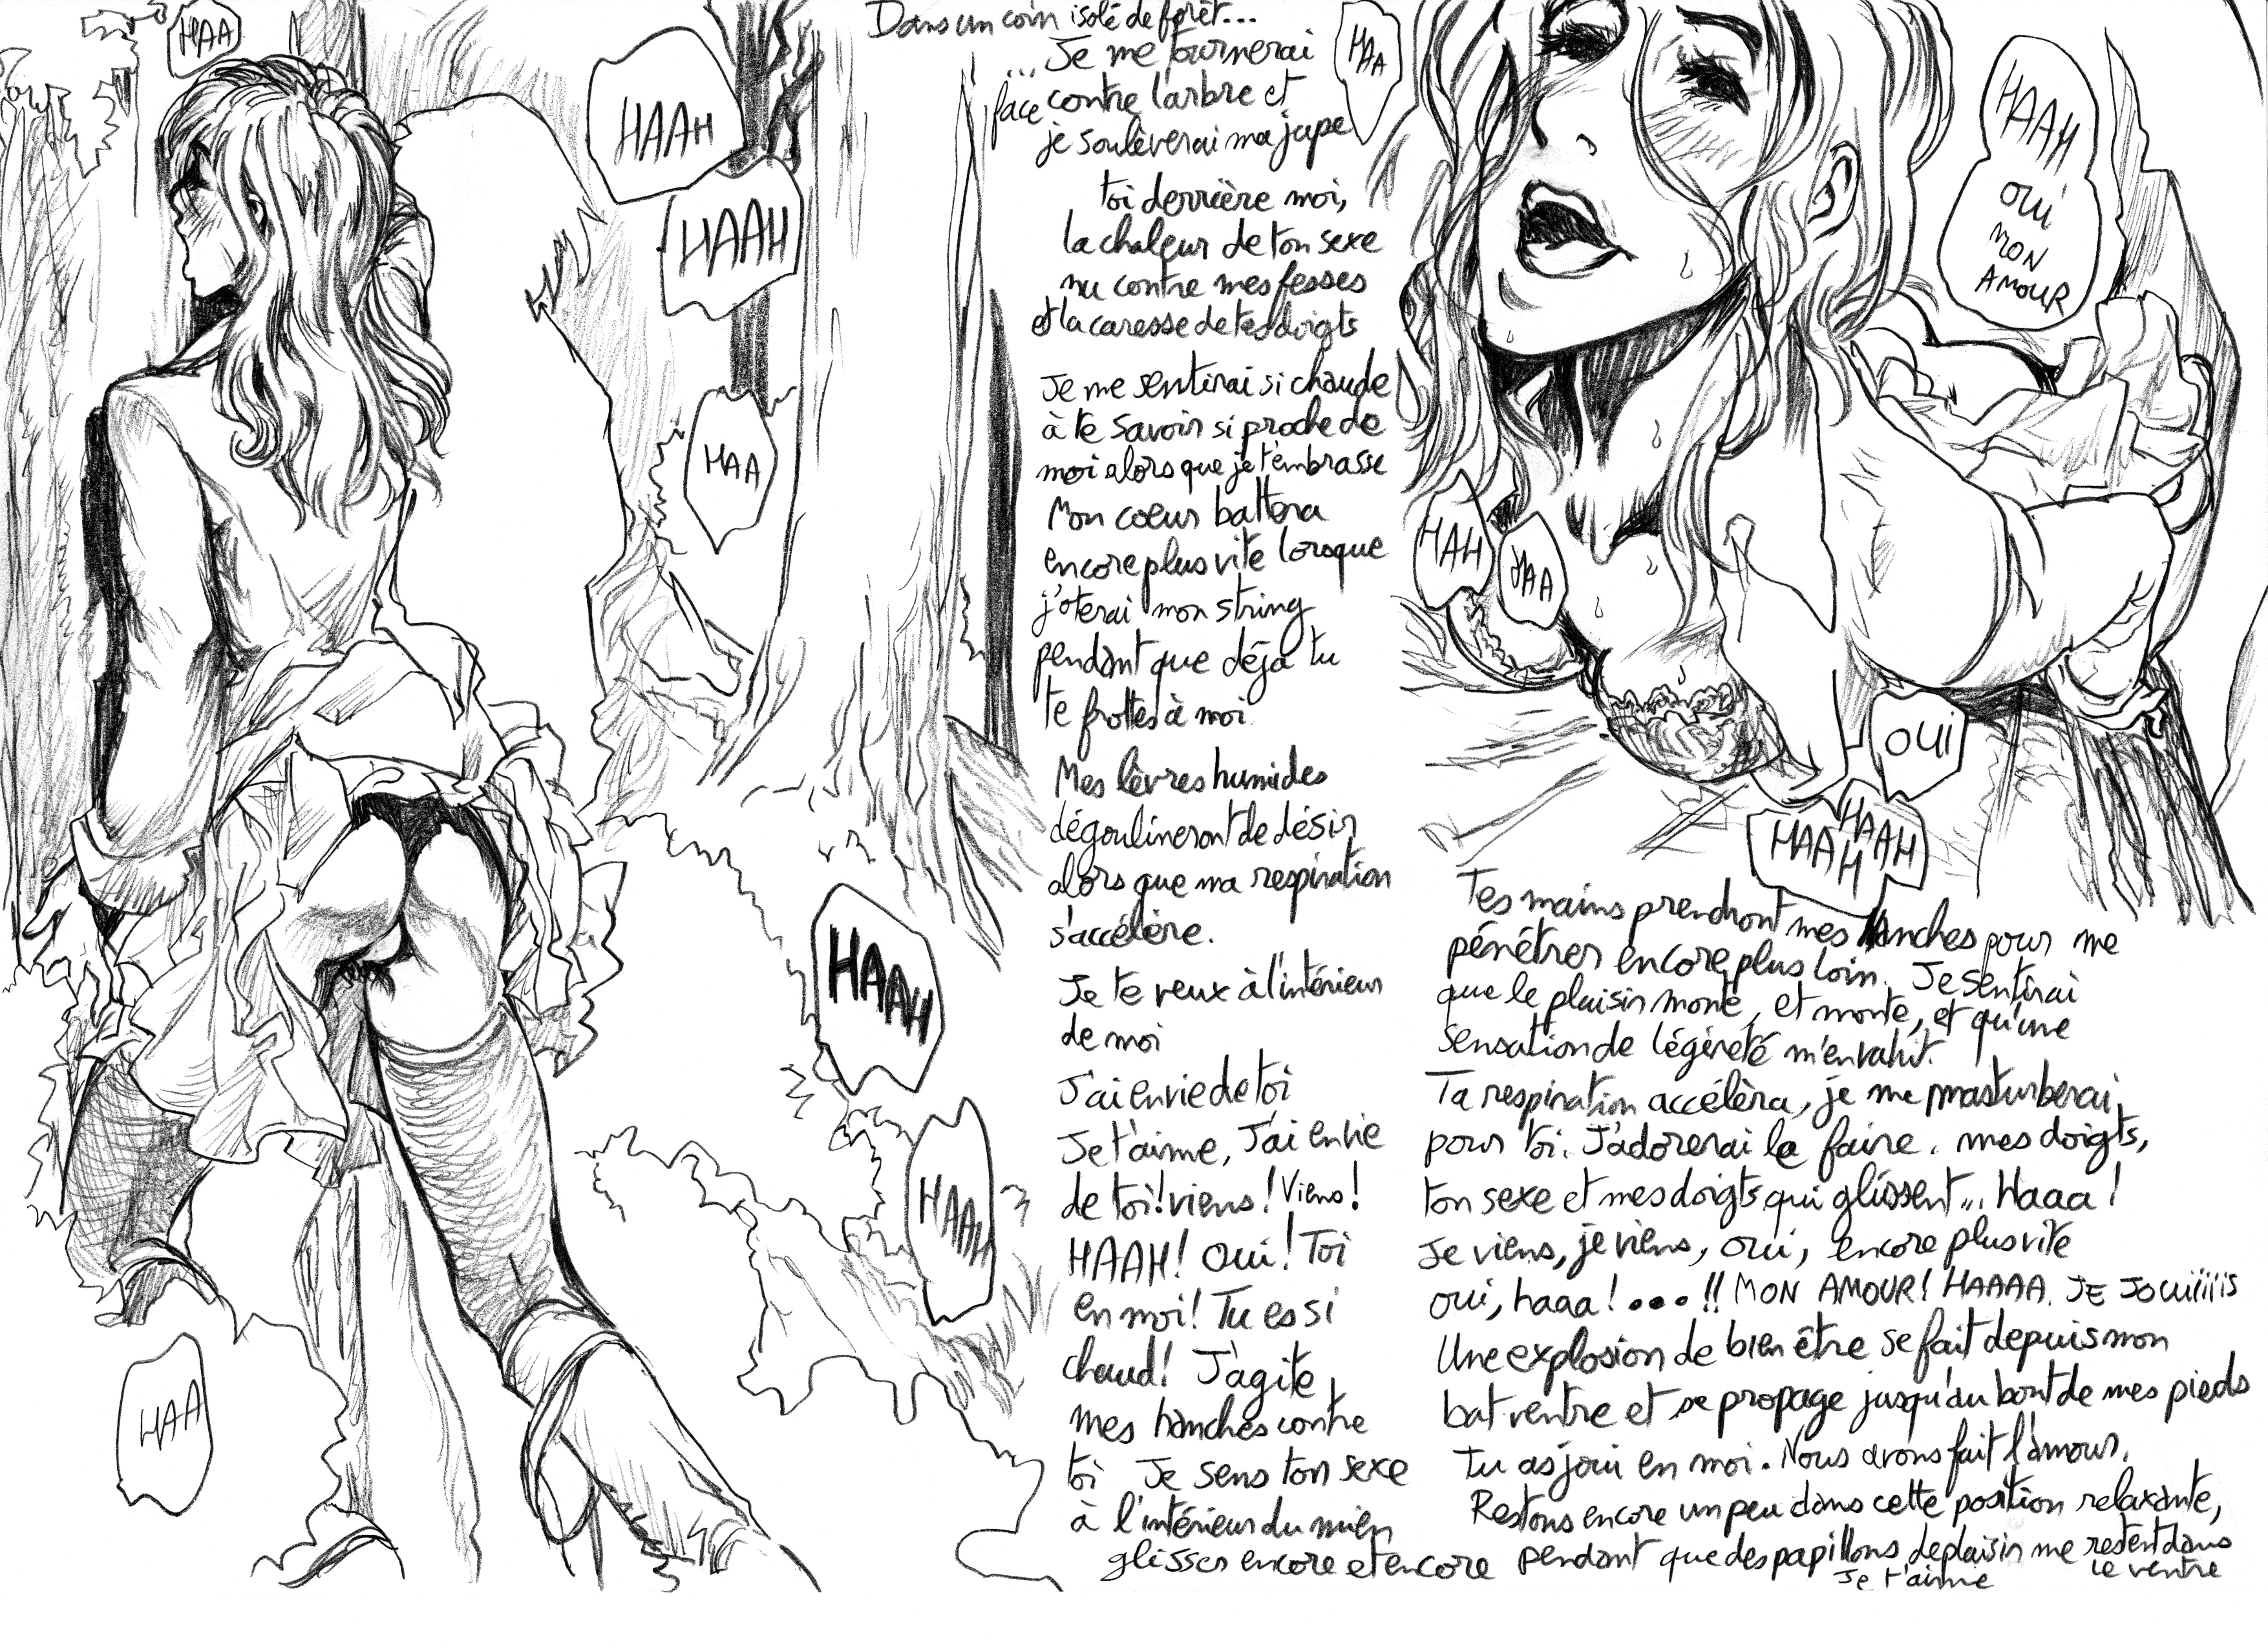 HAA
HAAH
HAAH
HAA
HAAH
HAAH
HAA
Dans un coin isolé de forêt...
... Je me tournerai
face contre l'arbre et
je soulèverai ma jupe
toi derrière moi,
la chaleur de ton sexe
nu contre mes fesses
et la caresse de tes doigts
Je me sentirai si chaude
à te savoir si proche de
moi alors que je t'embrasse
Mon coeur battera
encore plus vite lorsque
j'oterai mon string
pendant que déjà tu
te frottes à moi.
Mes lèvres humides
dégoulineront de désir
alors que ma respiration
s'accélère.
Je te veux à l'intérieur
de moi
J'ai envie de toi
Je t'aime, J'ai envie
de toi! viens! Viens!
HAAH! Oui! Toi
en moi! Tu es si
chaud! J'agite
mes hanches contre
toi Je sens ton sexe
à l'intérieur du mien
glisser encore et encore
HAA
HAAH
OUI
MON
AMOUR
HAH
HAA
OUI
HAAH
HAAH
Tes mains prendront mes hanches pour me
pénétrer encore plus loin. Je sentirai
que le plaisir monte, et monte, et qu'une
sensation de légèreté m'envahit.
Ta respiration accélèra, je me masturberai
pour toi. J'adorerai le faire. mes doigts,
ton sexe et mes doigts qui glissent... Haaa!
Je viens, je viens, oui, encore plus vite
oui, haaa!...!! MON AMOUR! HAAAA. JE JOUiiiiiS
Une explosion de bien être se fait depuis mon
bat ventre et se propage jusqu'au bout de mes pieds
Tu as joui en moi. Nous avons fait l'amour.
Restons encore un peu dans cette position relaxante,
pendant que des papillons de plaisir me restent dans
le ventre
Je t'aime